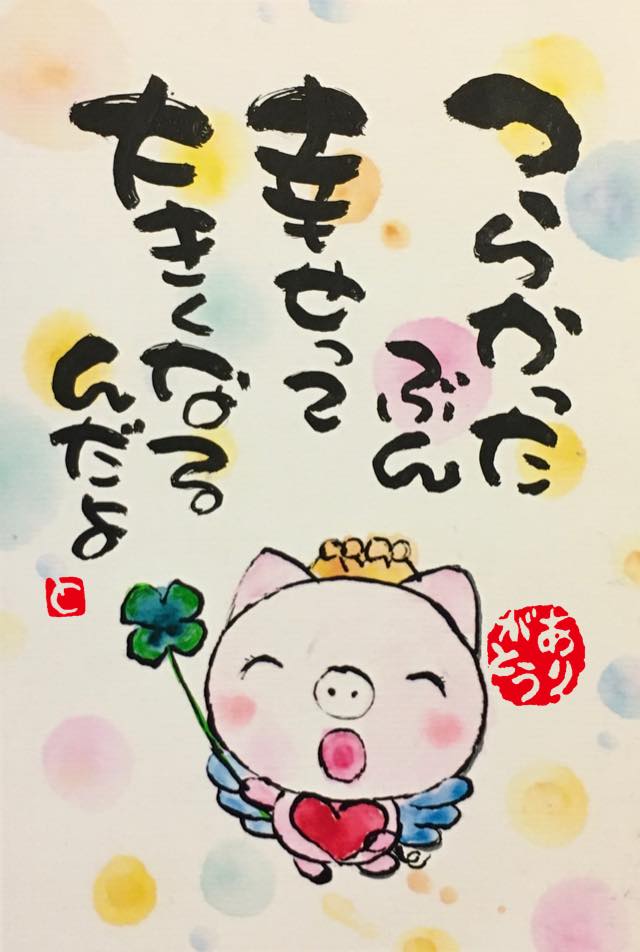 つらかった
ぶん
幸せって
大きくなる
んだよ
と
ありがとう